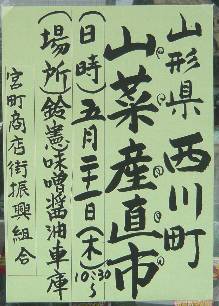 山形県 西川町
山菜産直市
(日時)五月二十一日(木)10:30~
(場所)鈴憲味噌醤油車庫
宮町商店街振興組合